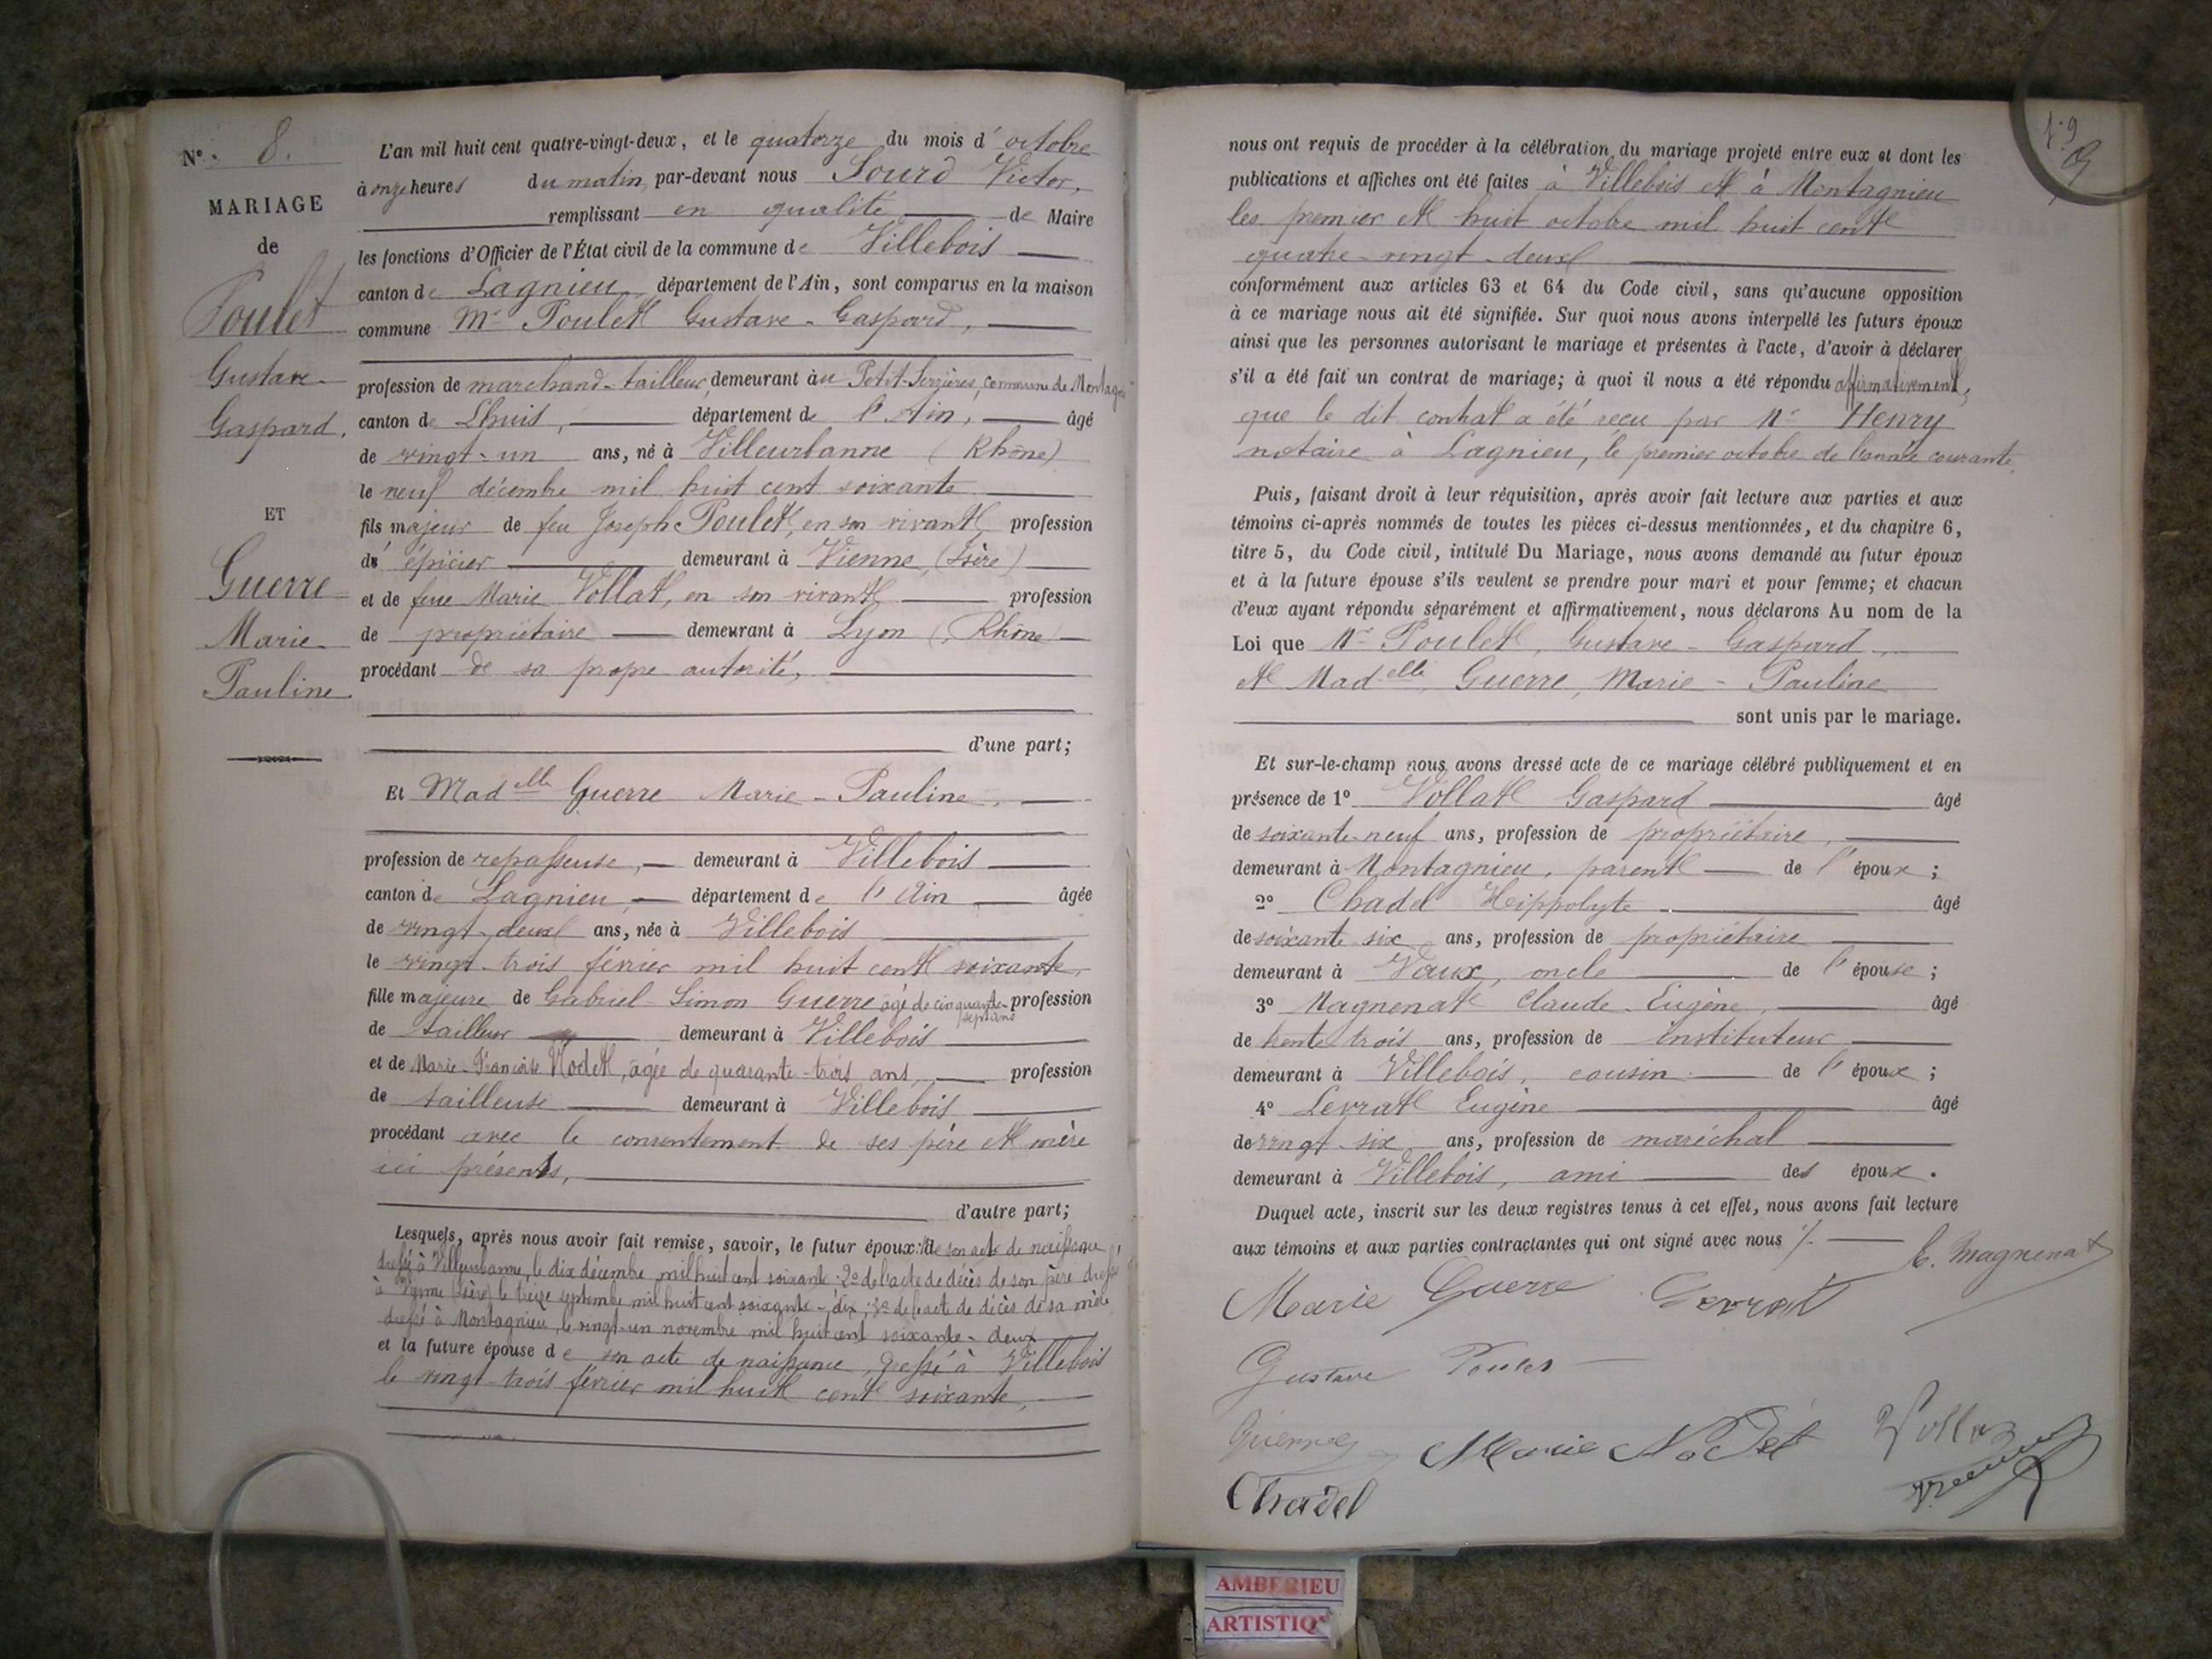 N° 8.
MARIAGE
de
Poulet
Gustave
Gaspard.
ET
Guerre
Marie
Pauline.
L'an mil huit cent quatre-vingt-deux, et le quatorze du mois d'octobre
à onze heures du matin, par-devant nous Sourd Victor,
remplissant en qualité de Maire
les fonctions d'Officier de l'État civil de la commune de Villebois
canton de Lagnieu, département de l'Ain, sont comparus en la maison
commune Mr Poulet Gustave-Gaspard,
profession de marchand-tailleur, demeurant au Petit-Serrières, commune de Montagnieu
canton de Lhuis, département de l'Ain, âgé
de vingt-un ans, né à Villeurbanne (Rhône)
le neuf décembre mil huit cent soixante
fils majeur de feu Joseph Poulet, en son vivant profession
d'épicier demeurant à Vienne, (Isère)
et de feue Marie Vollat, en son vivant profession
de propriétaire demeurant à Lyon (Rhône)
procédant de sa propre autorité,
d'une part;
Et Madelle Guerre Marie-Pauline,
profession de repasseuse, demeurant à Villebois
canton de Lagnieu, département de l'Ain âgée
de vingt-deux ans, née à Villebois
le vingt-trois février mil huit cent soixante,
fille majeure de Gabriel-Simon Guerre âgé de cinquante-sept ans profession
de tailleur demeurant à Villebois
et de Marie-Françoise Nodet, âgée de quarante-trois ans, profession
de tailleuse demeurant à Villebois
procédant avec le consentement de ses père et mère
ici présents,
d'autre part;
Lesquels, après nous avoir fait remise, savoir, le futur époux: 1° de son acte de naissance
dressé à Villeurbanne, le dix décembre mil huit cent soixante; 2° de l'acte de décès de son père dressé
à (Isère) le treize septembre mil huit cent soixante-dix; 3° de l'acte de décès de sa mère
dressé à Montagnieu, le vingt-un novembre mil huit cent soixante-deux
et la future épouse de son acte de naissance, dressé à Villebois
le vingt-trois février mil huit cent soixante,
nous ont requis de procéder à la célébration du mariage projeté entre eux et dont les
publications et affiches ont été faites à Villebois et à Montagnieu
les premier et huit octobre mil huit cent
quatre-vingt-deux
conformément aux articles 63 et 64 du Code civil, sans qu'aucune opposition
à ce mariage nous ait été signifiée. Sur quoi nous avons interpellé les futurs époux
ainsi que les personnes autorisant le mariage et présentes à l'acte, d'avoir à déclarer
s'il a été fait un contrat de mariage; à quoi il nous a été répondu affirmativement,
que le dit contrat a été reçu par Mr Henry
notaire à Lagnieu, le premier octobre de l'année courante,
Puis, faisant droit à leur réquisition, après avoir fait lecture aux parties et aux
témoins ci-après nommés de toutes les pièces ci-dessus mentionnées, et du chapitre 6,
titre 5, du Code civil, intitulé Du Mariage, nous avons demandé au futur époux
et à la future épouse s'ils veulent se prendre pour mari et pour femme; et chacun
d'eux ayant répondu séparément et affirmativement, nous déclarons Au nom de la
Loi que Mr Poulet, Gustave-Gaspard,
et Madelle Guerre, Marie-Pauline
sont unis par le mariage.
Et sur-le-champ nous avons dressé acte de ce mariage célébré publiquement et en
présence de 1° Vollat Gaspard âgé
de soixante-neuf ans, profession de propriétaire,
demeurant à Montagnieu, parent de l'époux;
2° Chadel Heippolyte âgé
de soixante six ans, profession de propriétaire
demeurant à Vaux, oncle de l'épouse;
3° Magnenat Claude-Eugène, âgé
de trente-trois ans, profession de instituteur
demeurant à Villebois, cousin de l'époux;
4° Levrat Eugène âgé
de vingt-six ans, profession de maréchal
demeurant à Villebois, ami des époux.
Duquel acte, inscrit sur les deux registres tenus à cet effet, nous avons fait lecture
aux témoins et aux parties contractantes qui ont signé avec nous
Magnenat
Marie Guerre Levrat
Gustave Poulet
Guerre Marie Nodet Vollat
Chadel
AMBERIEU
ARTISTIQ